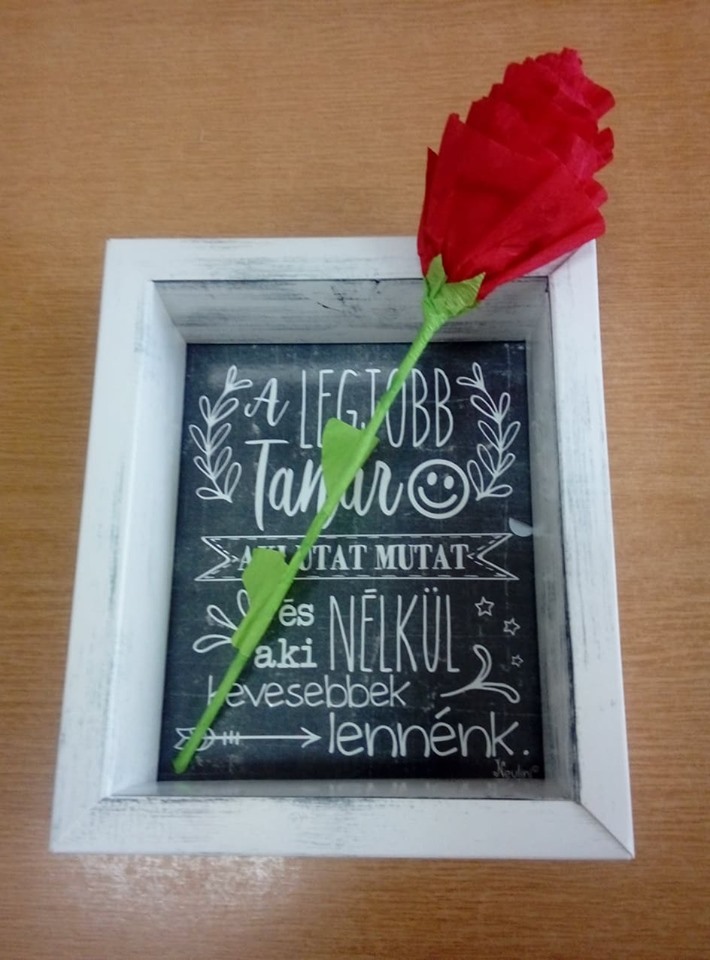 A LEGJOBB
Tanár
AKI UTAT MUTAT
és
aki NÉLKÜL
kevesebbek
lennénk.